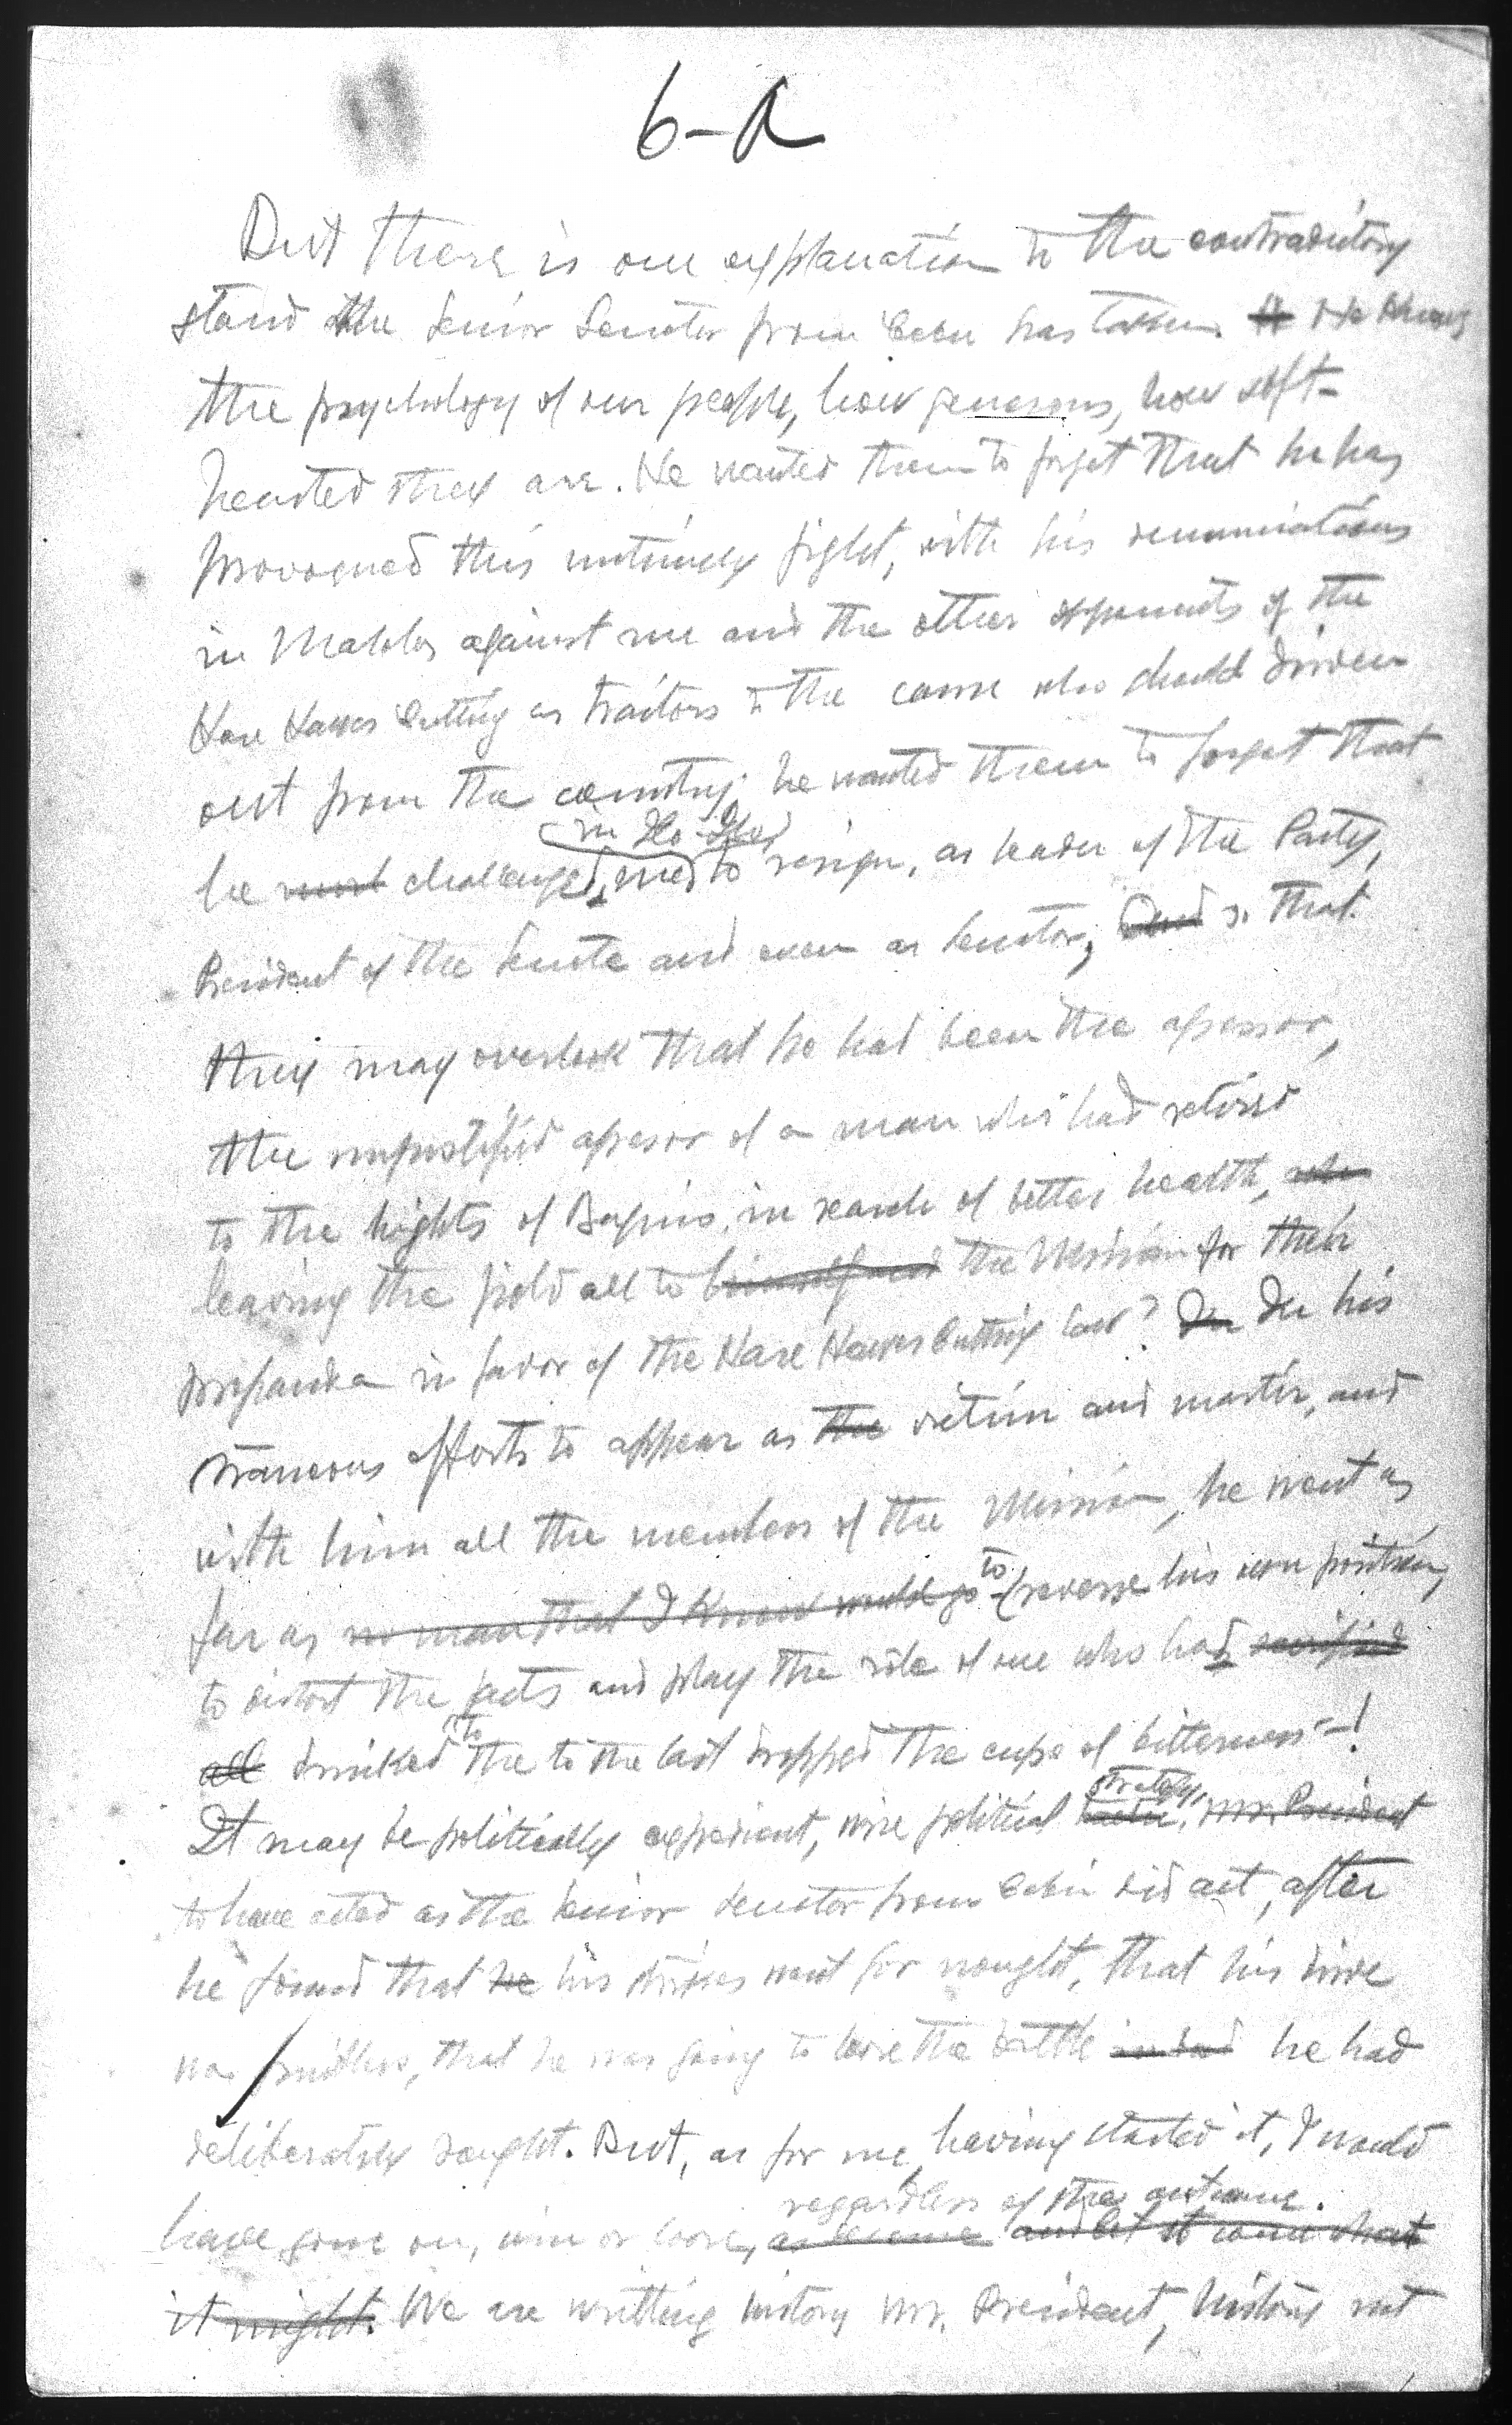 6-A
But there is one explanation to the contradictory
stand the Senior Senator from Cebu has taken. It He knows
the psychology of our people, how generous, how soft-
hearted they are. He wanted them to forget that he has
provoqued this untimely fight, with his denunciations
in against me and the other opponents of the
Hare Hawes Cutting as traitors to the cause who should driven
out from the country; he wanted them to forget that
in Ilo-Ilo
he challenged me to resign, as leader of the Party,
President of the Senate and even as Senator; and so that
they may overlook that he had been the agressor,
the unjustified agresor of a man who had retired
to the hights of Baguio, in search of better health, who
leaving the field all to himself and the Mission for their
propaganda in favor of the Hare Hawes Cutting law? In In his
efforts to appear as the victim and martir, and
with him all the members of the Mission, he went as
far as no man that I know would go to reverse his own position,
to distort the facts and play the role of one who had sacrificed
all drinked to the to the last dropped the cups of bitterness-!
strategy,
It may be politically expedient, wise political Mr. President
to have acted as the Senior Senator from Cebu did act, after
he found that he his strikes went for nought, that his drive
was fruitless, that he was going to loose the battle he had
deliberately sought. But, as for me, having started it, I would
regardless of the outcome.
have gone on, win or loose, and let it come what
it might. We are writting history Mr. President, history not